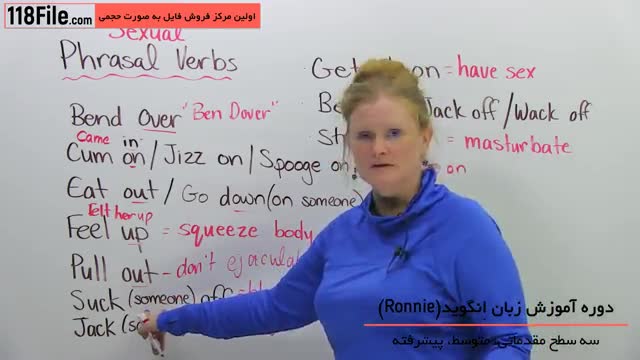 118File.com
اولین مرکز فروش فایل به صورت حجمی
Sexual
Phrasal Verbs
Bend Over "Ben Dover"
Came in
Cum on / Jizz on / Spooge on
Eat out / Go down (on someone)
Felt her up
Feel up = squeeze body
Pull out - don't
Suck (someone) off
Jack
on = have sex
Jack off / Wack off
= masturbate
on
دوره آموزش زبان انگوید (Ronnie)
سه سطح مقدماتی، متوسط، پیشرفته